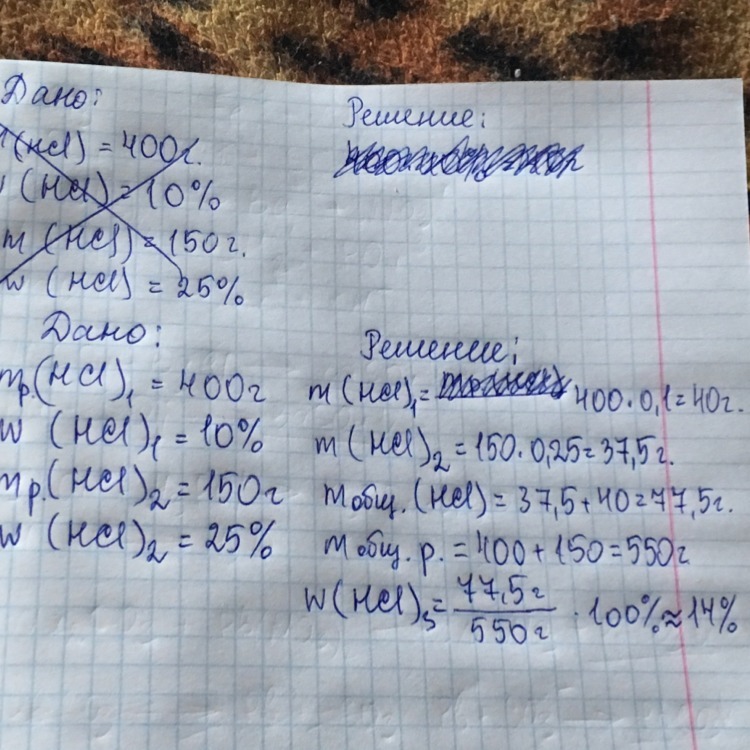 Дано:
(HCl) = 400г.
(HCl) = 10%
m (HCl) = 150г.
w (HCl) = 25%
Решение:
Дано:
mр.(HCl)₁ = 400г
w (HCl)₁ = 10%
mр.(HCl)₂ = 150г
w (HCl)₂ = 25%
Решение:
m (HCl)₁ = 400·0,1=40г.
m (HCl)₂ = 150·0,25=37,5г.
mобщ.(HCl) = 37,5+40=77,5г.
mобщ.р. = 400+150=550г
w(HCl)₃ = 77,5г / 550г · 100% ≈ 14%